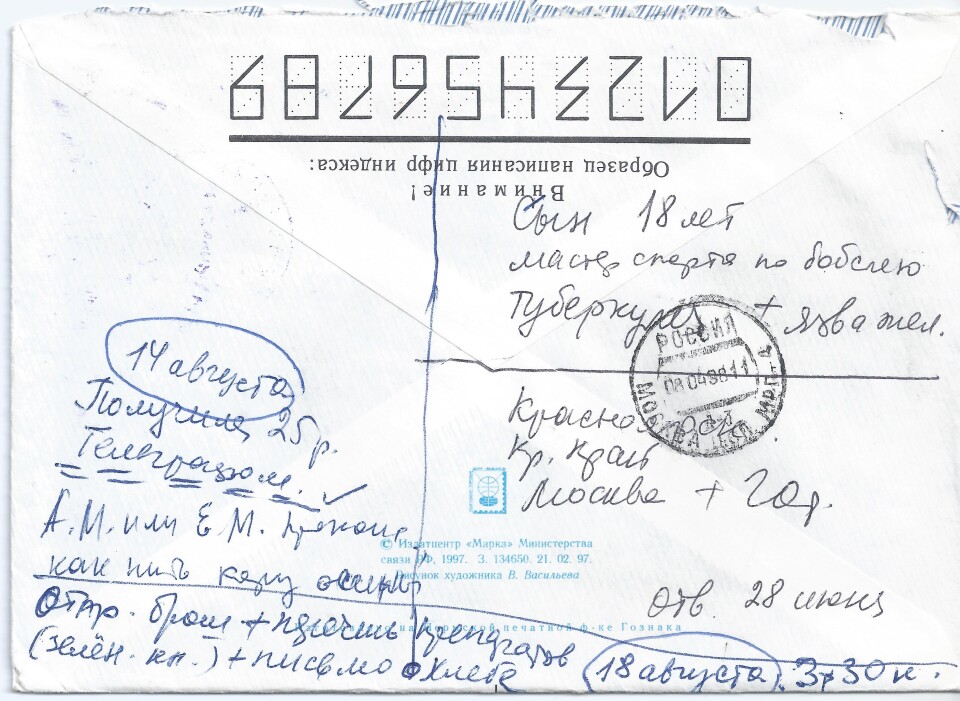 0123456789
Образец написания цифр индекса:
Внимание!
Сын 18 лет
мастер спорта по бобслею
туберкулез + язва жел.
РОССИЯ
08 04 98 11
МОСКВА
14 августа
Получила 25 р.
Телеграфом.
Красно
Кр. край
Москва + Гор.
А.М. или Е.М.
как пить кору осины
© Издатцентр «Марка» Министерства
связи РФ, 1997. З. 134650. 21. 02. 97.
Рисунок художника В. Васильева
Отв. 28 июня
Отпр. бром + перечень препаратов
печатной ф-ке Гознака
(зелён. кн.) + письмо о хлебе
18 августа 3-30 к.